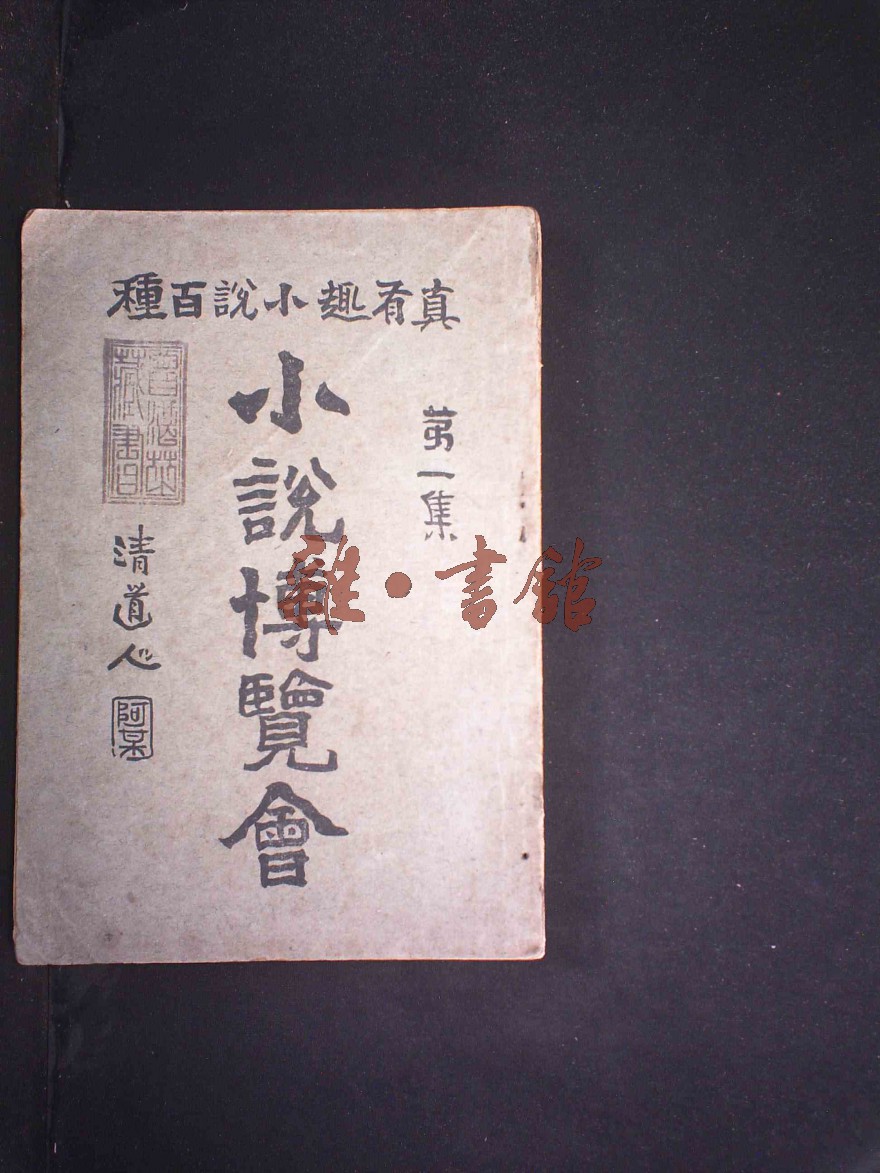 真有趣小說百種
第一集
小說博覽會
清道人
雜·書館